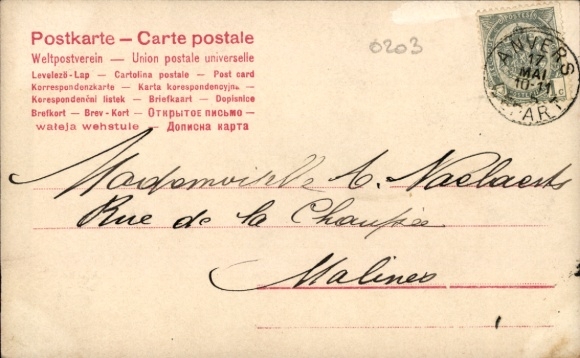 Postkarte — Carte postale
Weltpostverein — Union postale universelle
Levelező-Lap — Cartolina postale — Post card
Korrespondenzkarte — Karta korespondencyjna
Korespondenční lístek — Briefkaart — Dopisnice
Brefkort — Brev-Kort — Открытое письмо —
wateja wehstule — Дописна карта
0203
ANVERS
17
MAI
10-11
DEPART
Mademoiselle C. Naelaerts
Rue de la Chaussée
Malines